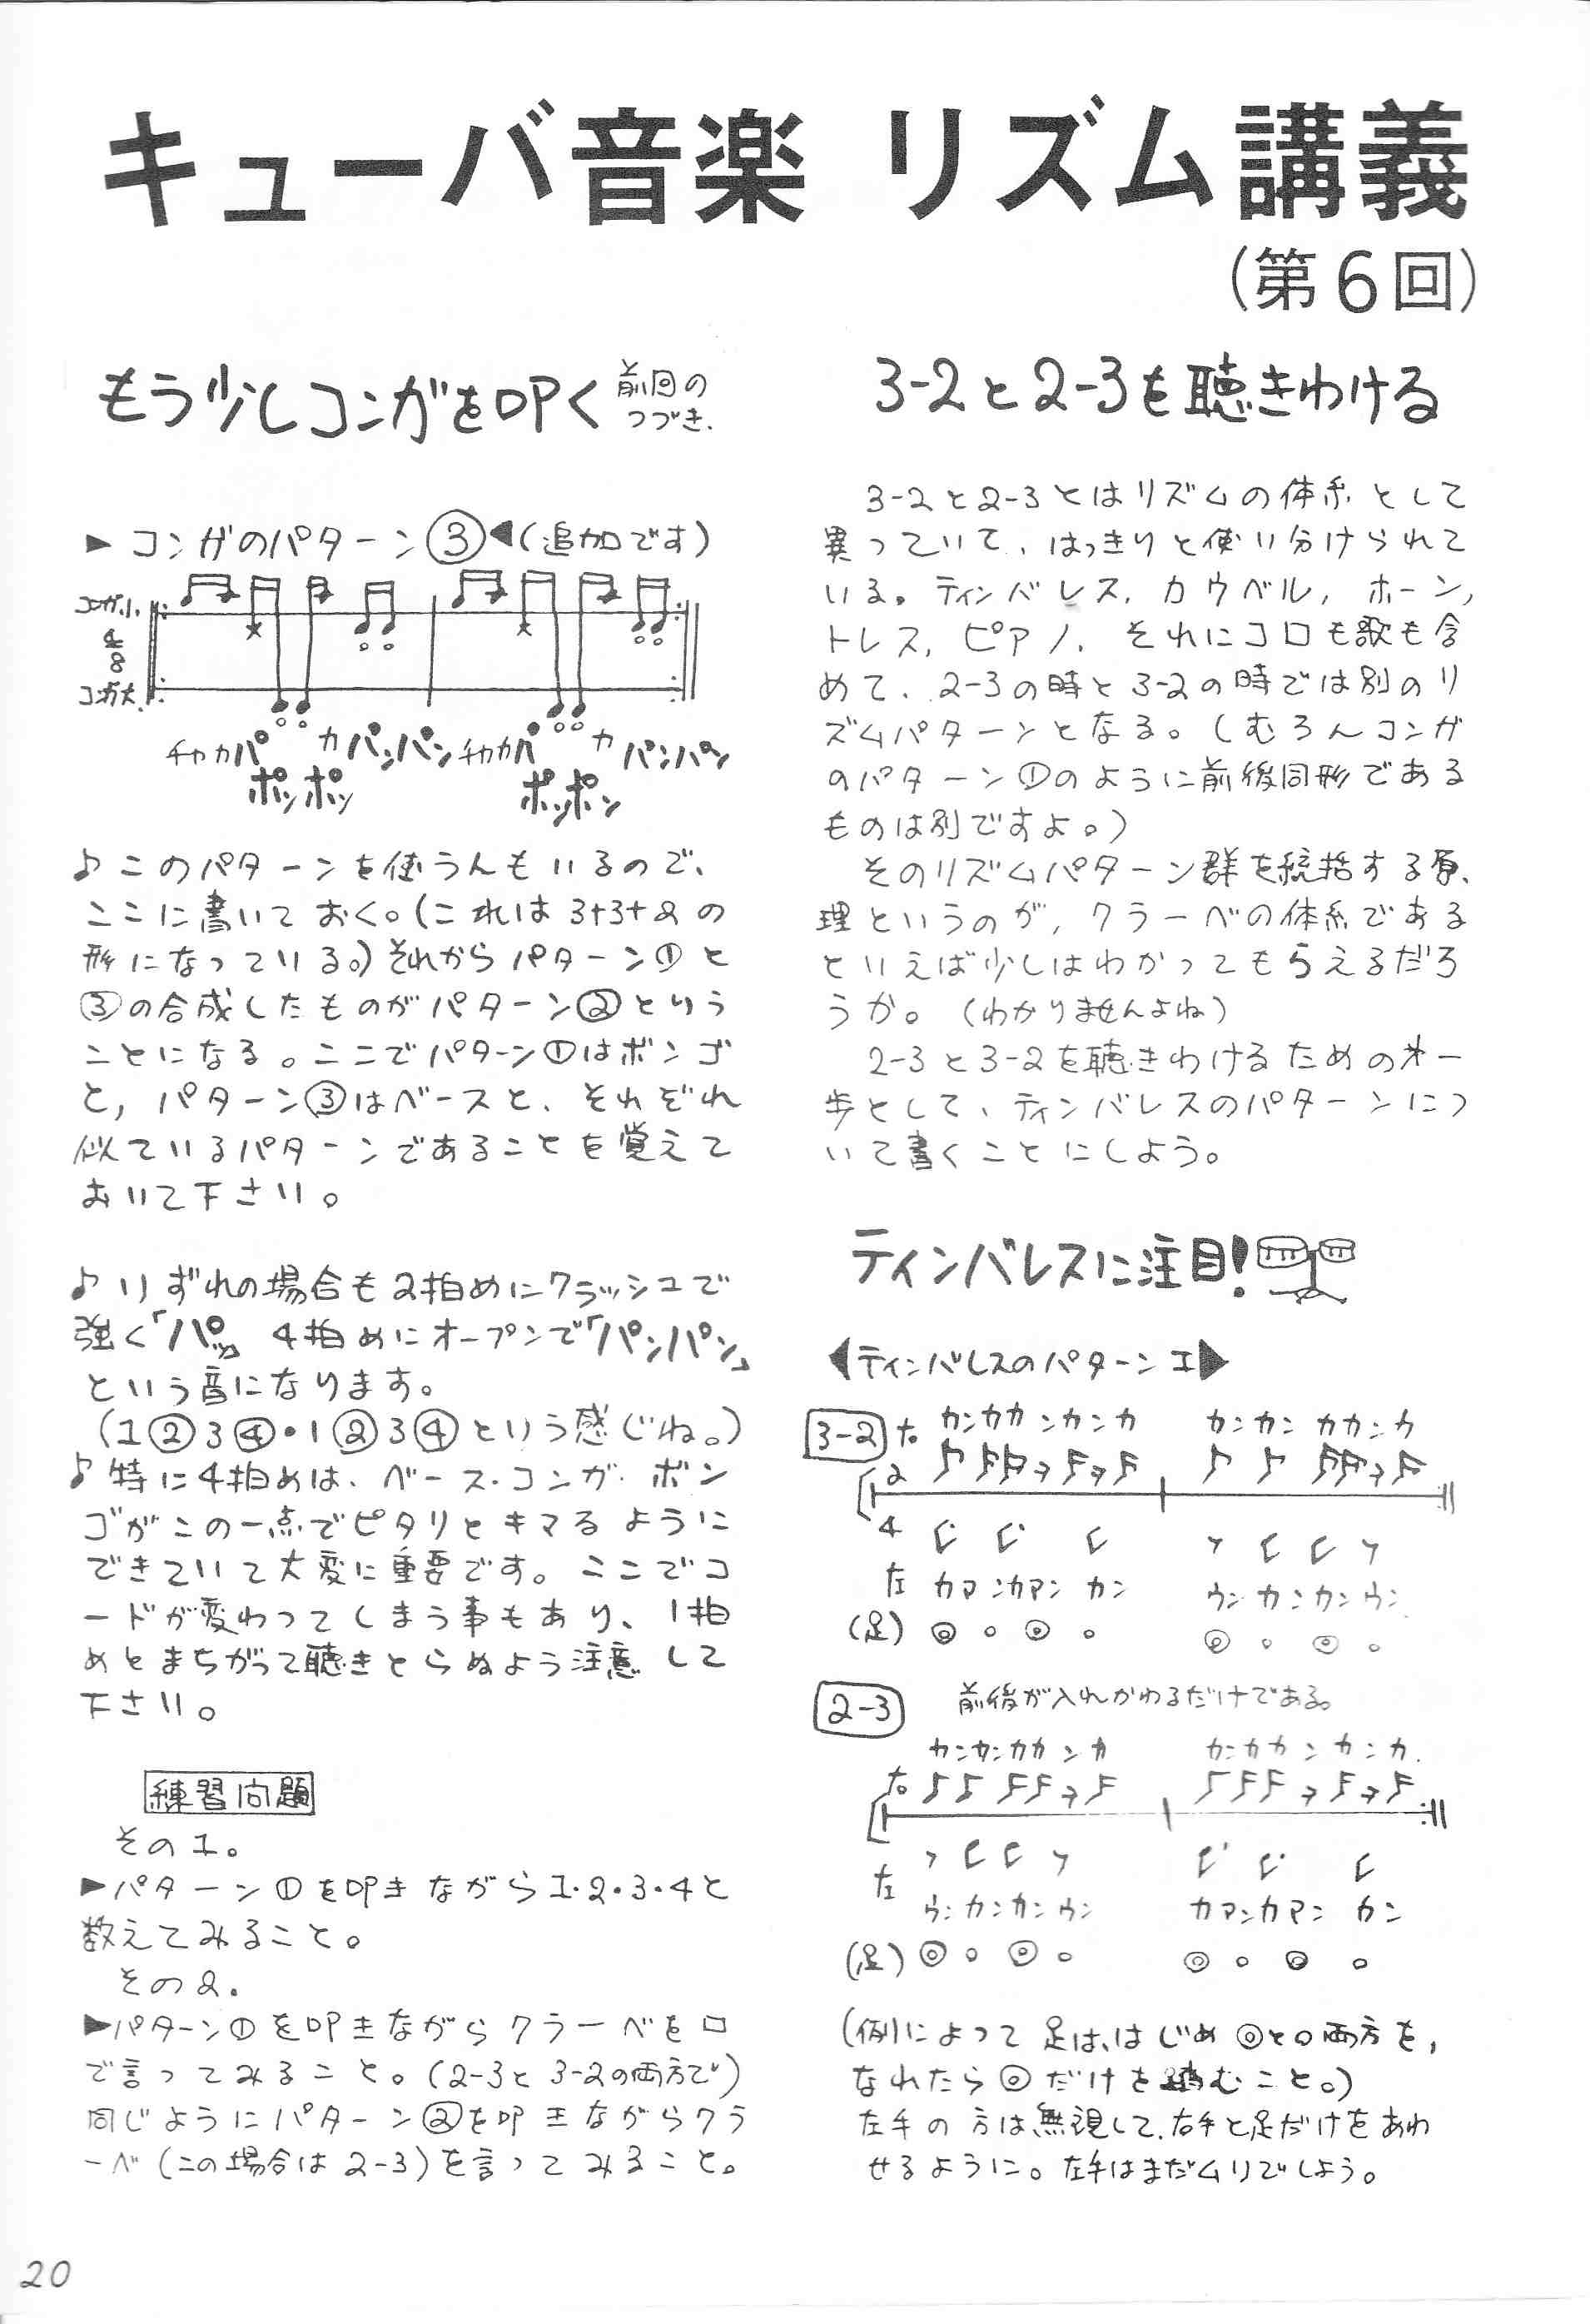 キューバ音楽 リズム講義
(第6回)
もう少しコンガを叩く 前回の
つづき.
▶ コンガのパターン③◀(追加です)
コンガ小
4
8
コンガ大
チャカパ カパンパン チャカパ カ パンパン
ポッポッ ポンポン
♪このパターンを使う人もいるので、
ここに書いておく。(これは3+3+2の
形になっている。)それからパターン①と
③の合成したものがパターン②という
ことになる。ここでパターン①はボンゴ
と, パターン③はベースと、それぞれ
似ているパターンであることを覚えて
おいて下さい。
♪いずれの場合も2拍めにクラッシュで
強く「パッ」 4拍めにオープンで「パンパン」
という音になります。
(1②3④・1②3④という感じね。)
♪特に4拍めは、ベース・コンガ・ボン
ゴがこの一点でピタリとキマるように
できていて大変に重要です。ここでコ
ードが変わってしまう事もあり、1拍
めとまちがって聴きとらぬよう注意して
下さい。
練習問題
その1。
▶パターン①を叩きながら1・2・3・4と
数えてみること。
その2.
▶パターン①を叩きながらクラーベを口
で言ってみること。(2-3と3-2の両方で)
同じようにパターン②を叩きながらクラ
ーベ(この場合は2-3)を言ってみること。
20
3-2と2-3を聴きわける
3-2と2-3とはリズムの体系として
異っていて、はっきりと使い分けられて
いる。ティンバレス, カウベル, ホーン,
トレス, ピアノ, それにコロも歌も含
めて、2-3の時と3-2の時では別のリ
ズムパターンとなる。(むろんコンガ
のパターン①のように前後同形である
ものは別ですよ。)
そのリズムパターン群を統括する原
理というのが, クラーベの体系である
といえば少しはわかってもらえるだろ
うか。(わかりませんよね)
2-3と3-2を聴きわけるための才一
歩として、ティンバレスのパターンにつ
いて書くことにしよう。
ティンバレスに注目!
◀ティンバレスのパターン I▶
3-2 右 カンカカンカンカ カンカンカカンカ
2
4
左 カアンカアンカン ウンカンカンウン
(足) ◎ ○ ◎ ○ ◎ ○ ◎ ○
2-3 前後が入れかわるだけである。
カンカンカカンカ カンカカンカンカ.
右
左
ウンカンカンウン カアンカアンカン
(足) ◎ ○ ◎ ○ ◎ ○ ◎ ○
(例によって足は、はじめ◎と○両方を,
なれたら◎だけを踏むこと。)
左手の方は無視して、右手と足だけをあわ
せるように。左手はまだムリでしょう。